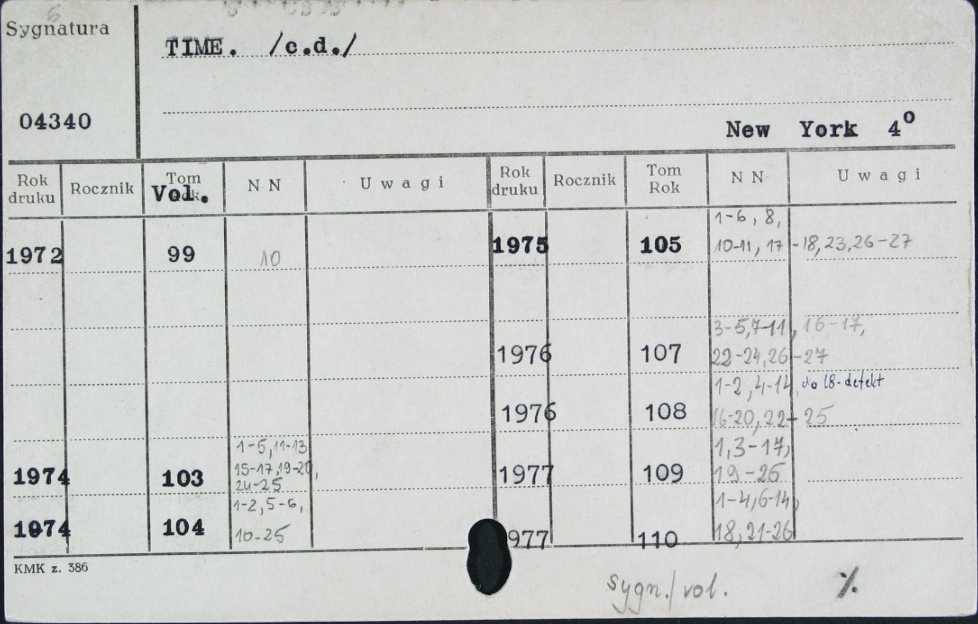 Sygnatura
TIME. /c.d./
04340
New York 4º
Rok druku Rocznik Tom Rok Vol. N N U w a g i
Rok druku Rocznik Tom Rok N N U w a g i
1972 99 10
1974 103 1-5, 11-13
15-17, 19-20,
24-25
1974 104 1-2, 5-6,
10-25
1975 105 1-6, 8,
10-11, 17-18, 23, 26-27
1976 107 3-5, 7-11, 16-17,
22-24, 26-27
1976 108 1-2, 4-14, do 18-defekt
16-20, 22-25
1977 109 1, 3-17,
19-26
1977 110 1-4, 6-14,
18, 21-26
KMK z. 386
sygn./vol. ./.